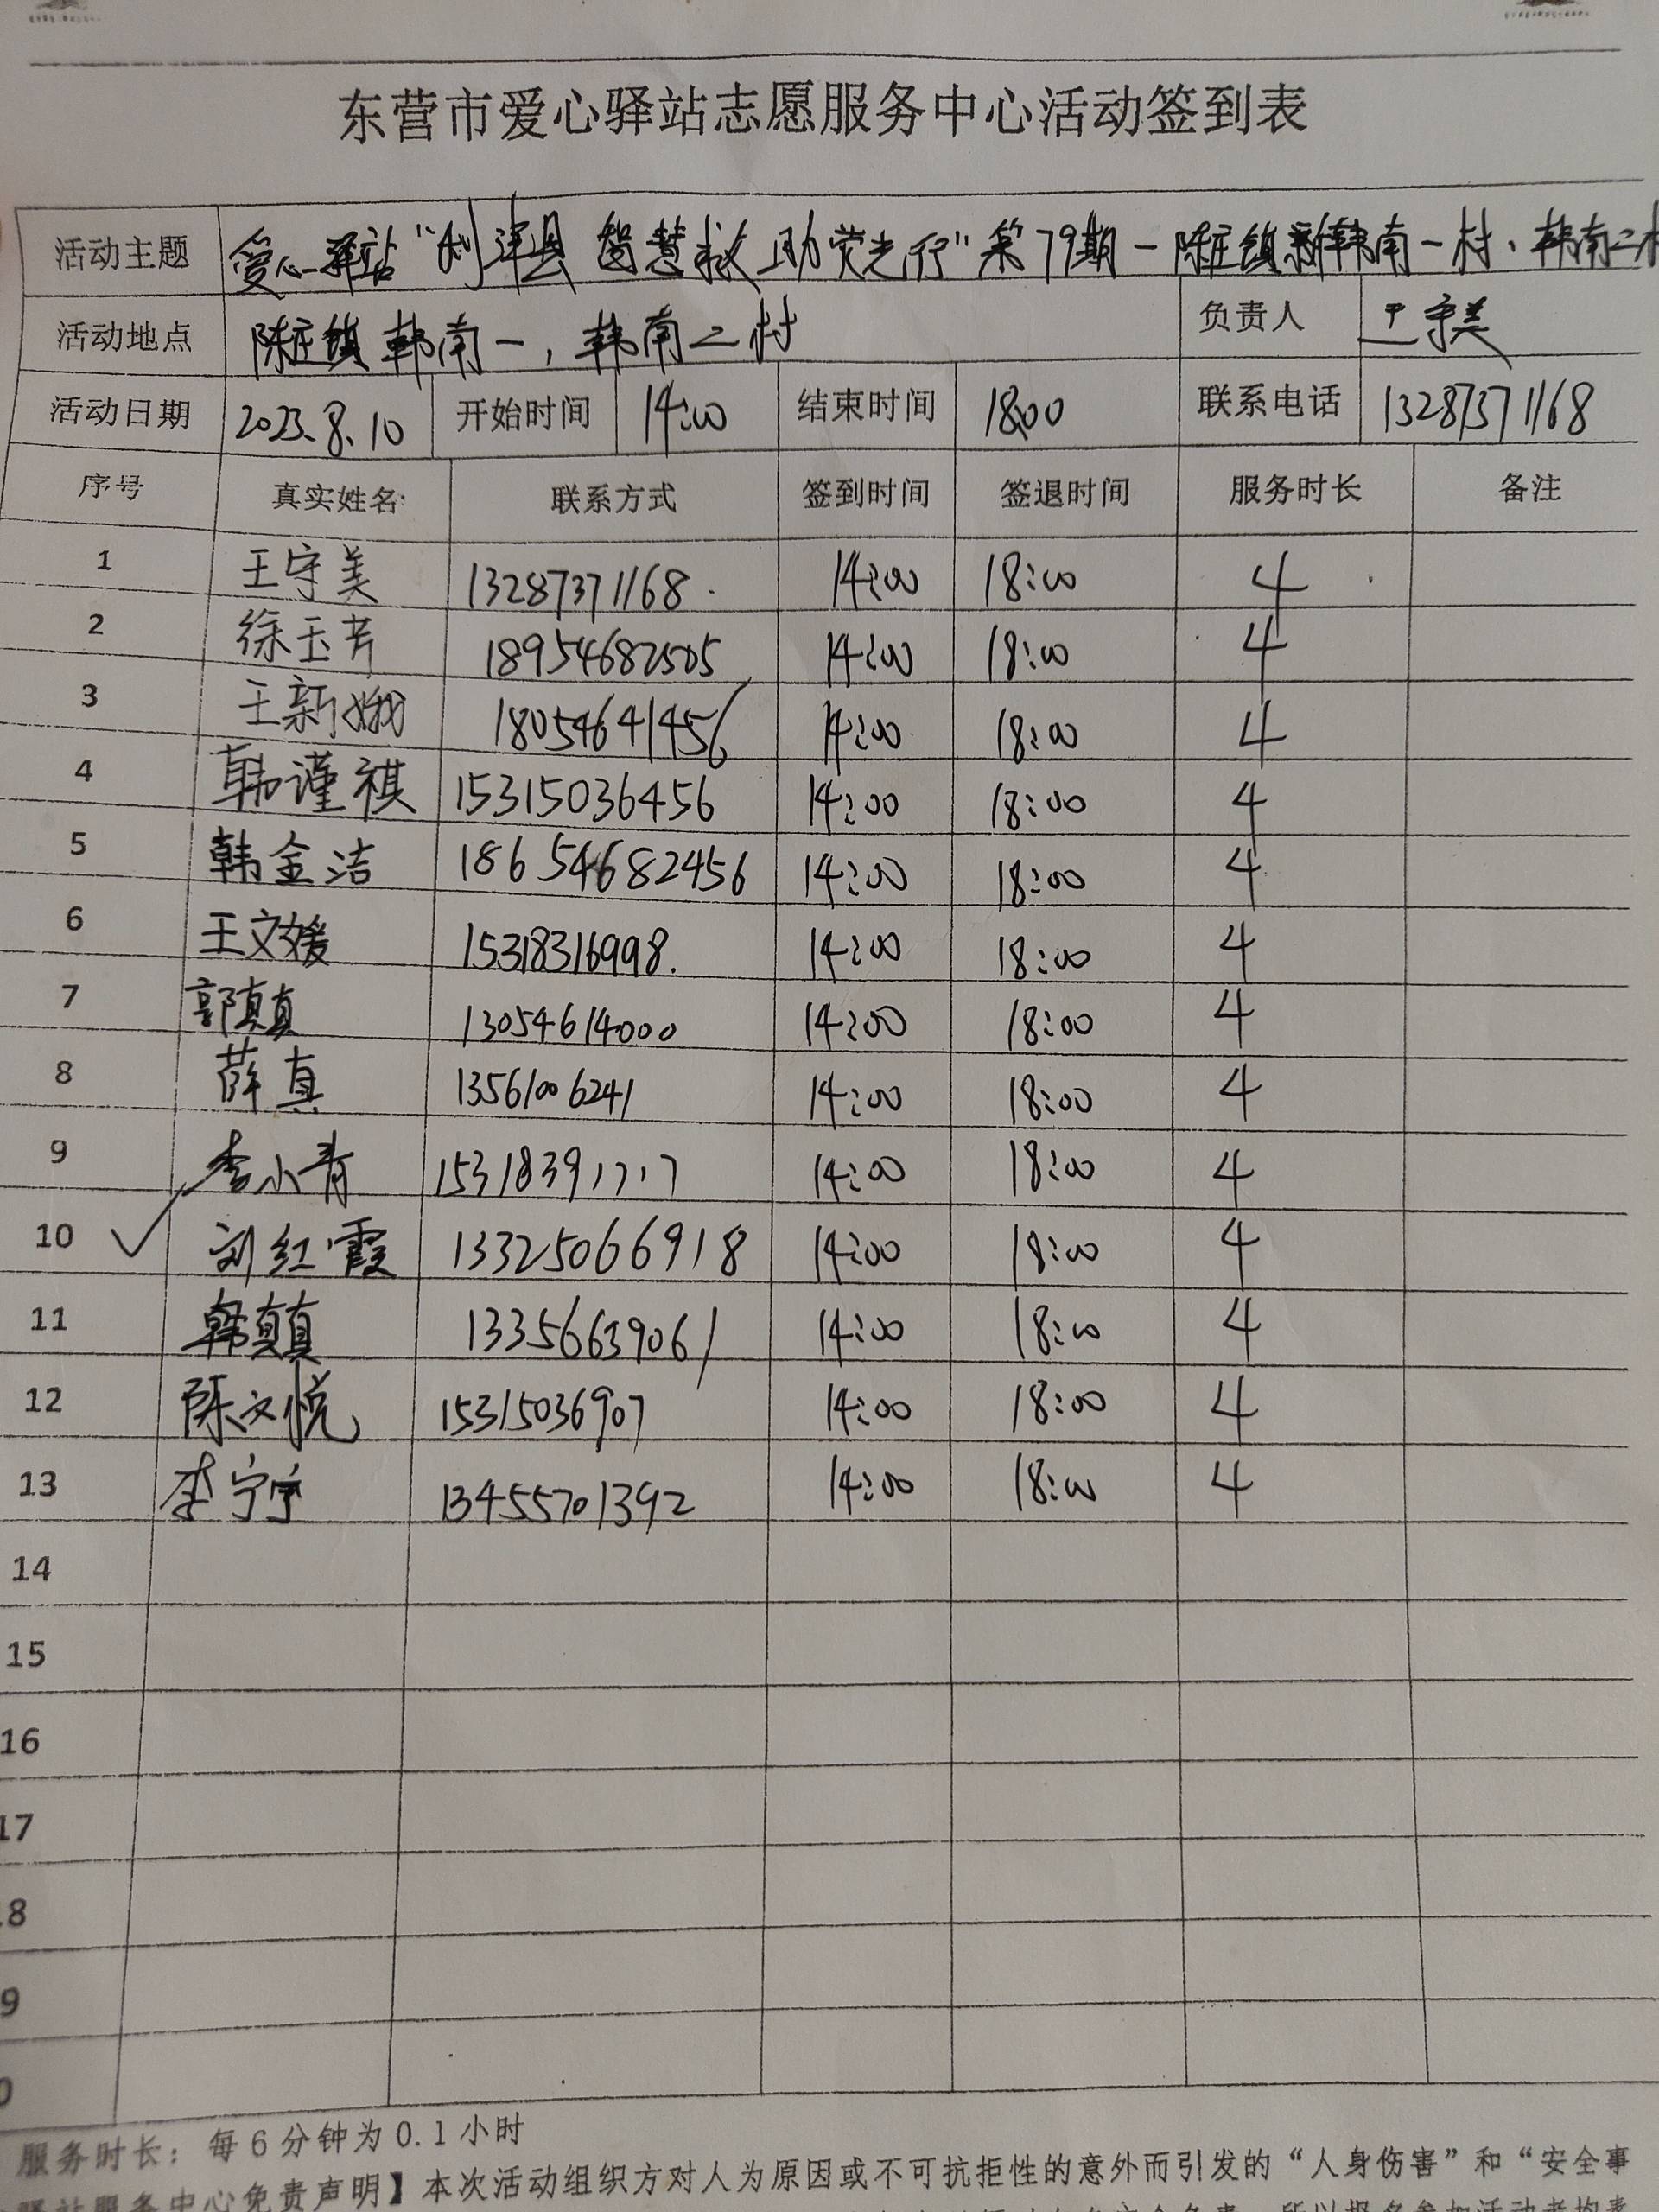 东营市爱心驿站志愿服务中心活动签到表
活动主题 爱心驿站“利津县智慧救助荧光行”第79期－陈庄镇新韩南一村、韩南二村
活动地点 陈庄镇韩南一，韩南二村 负责人 王守美
活动日期 2023.8.10 开始时间 14:00 结束时间 18:00 联系电话 13287371168
序号 真实姓名 联系方式 签到时间 签退时间 服务时长 备注
1 王守美 13287371168 14:00 18:00 4
2 徐玉芳 18954682505 14:00 18:00 4
3 王新娥 18054641456 14:00 18:00 4
4 韩谨祺 15315036456 14:00 18:00 4
5 韩金洁 18654682456 14:00 18:00 4
6 王文媛 15318316998. 14:00 18:00 4
7 郭真真 13054614000 14:00 18:00 4
8 薛真 13561006241 14:00 18:00 4
9 李小青 15318391717 14:00 18:00 4
10 ✓ 刘红霞 13325066918 14:00 18:00 4
11 韩真真 13356639061 14:00 18:00 4
12 陈文悦 15315036907 14:00 18:00 4
13 李宁宁 13455701392 14:00 18:00 4
14
15
16
17
8
9
0
服务时长：每6分钟为0.1小时
驿站服务中心免责声明】本次活动组织方对人为原因或不可抗拒性的意外而引发的“人身伤害”和“安全事